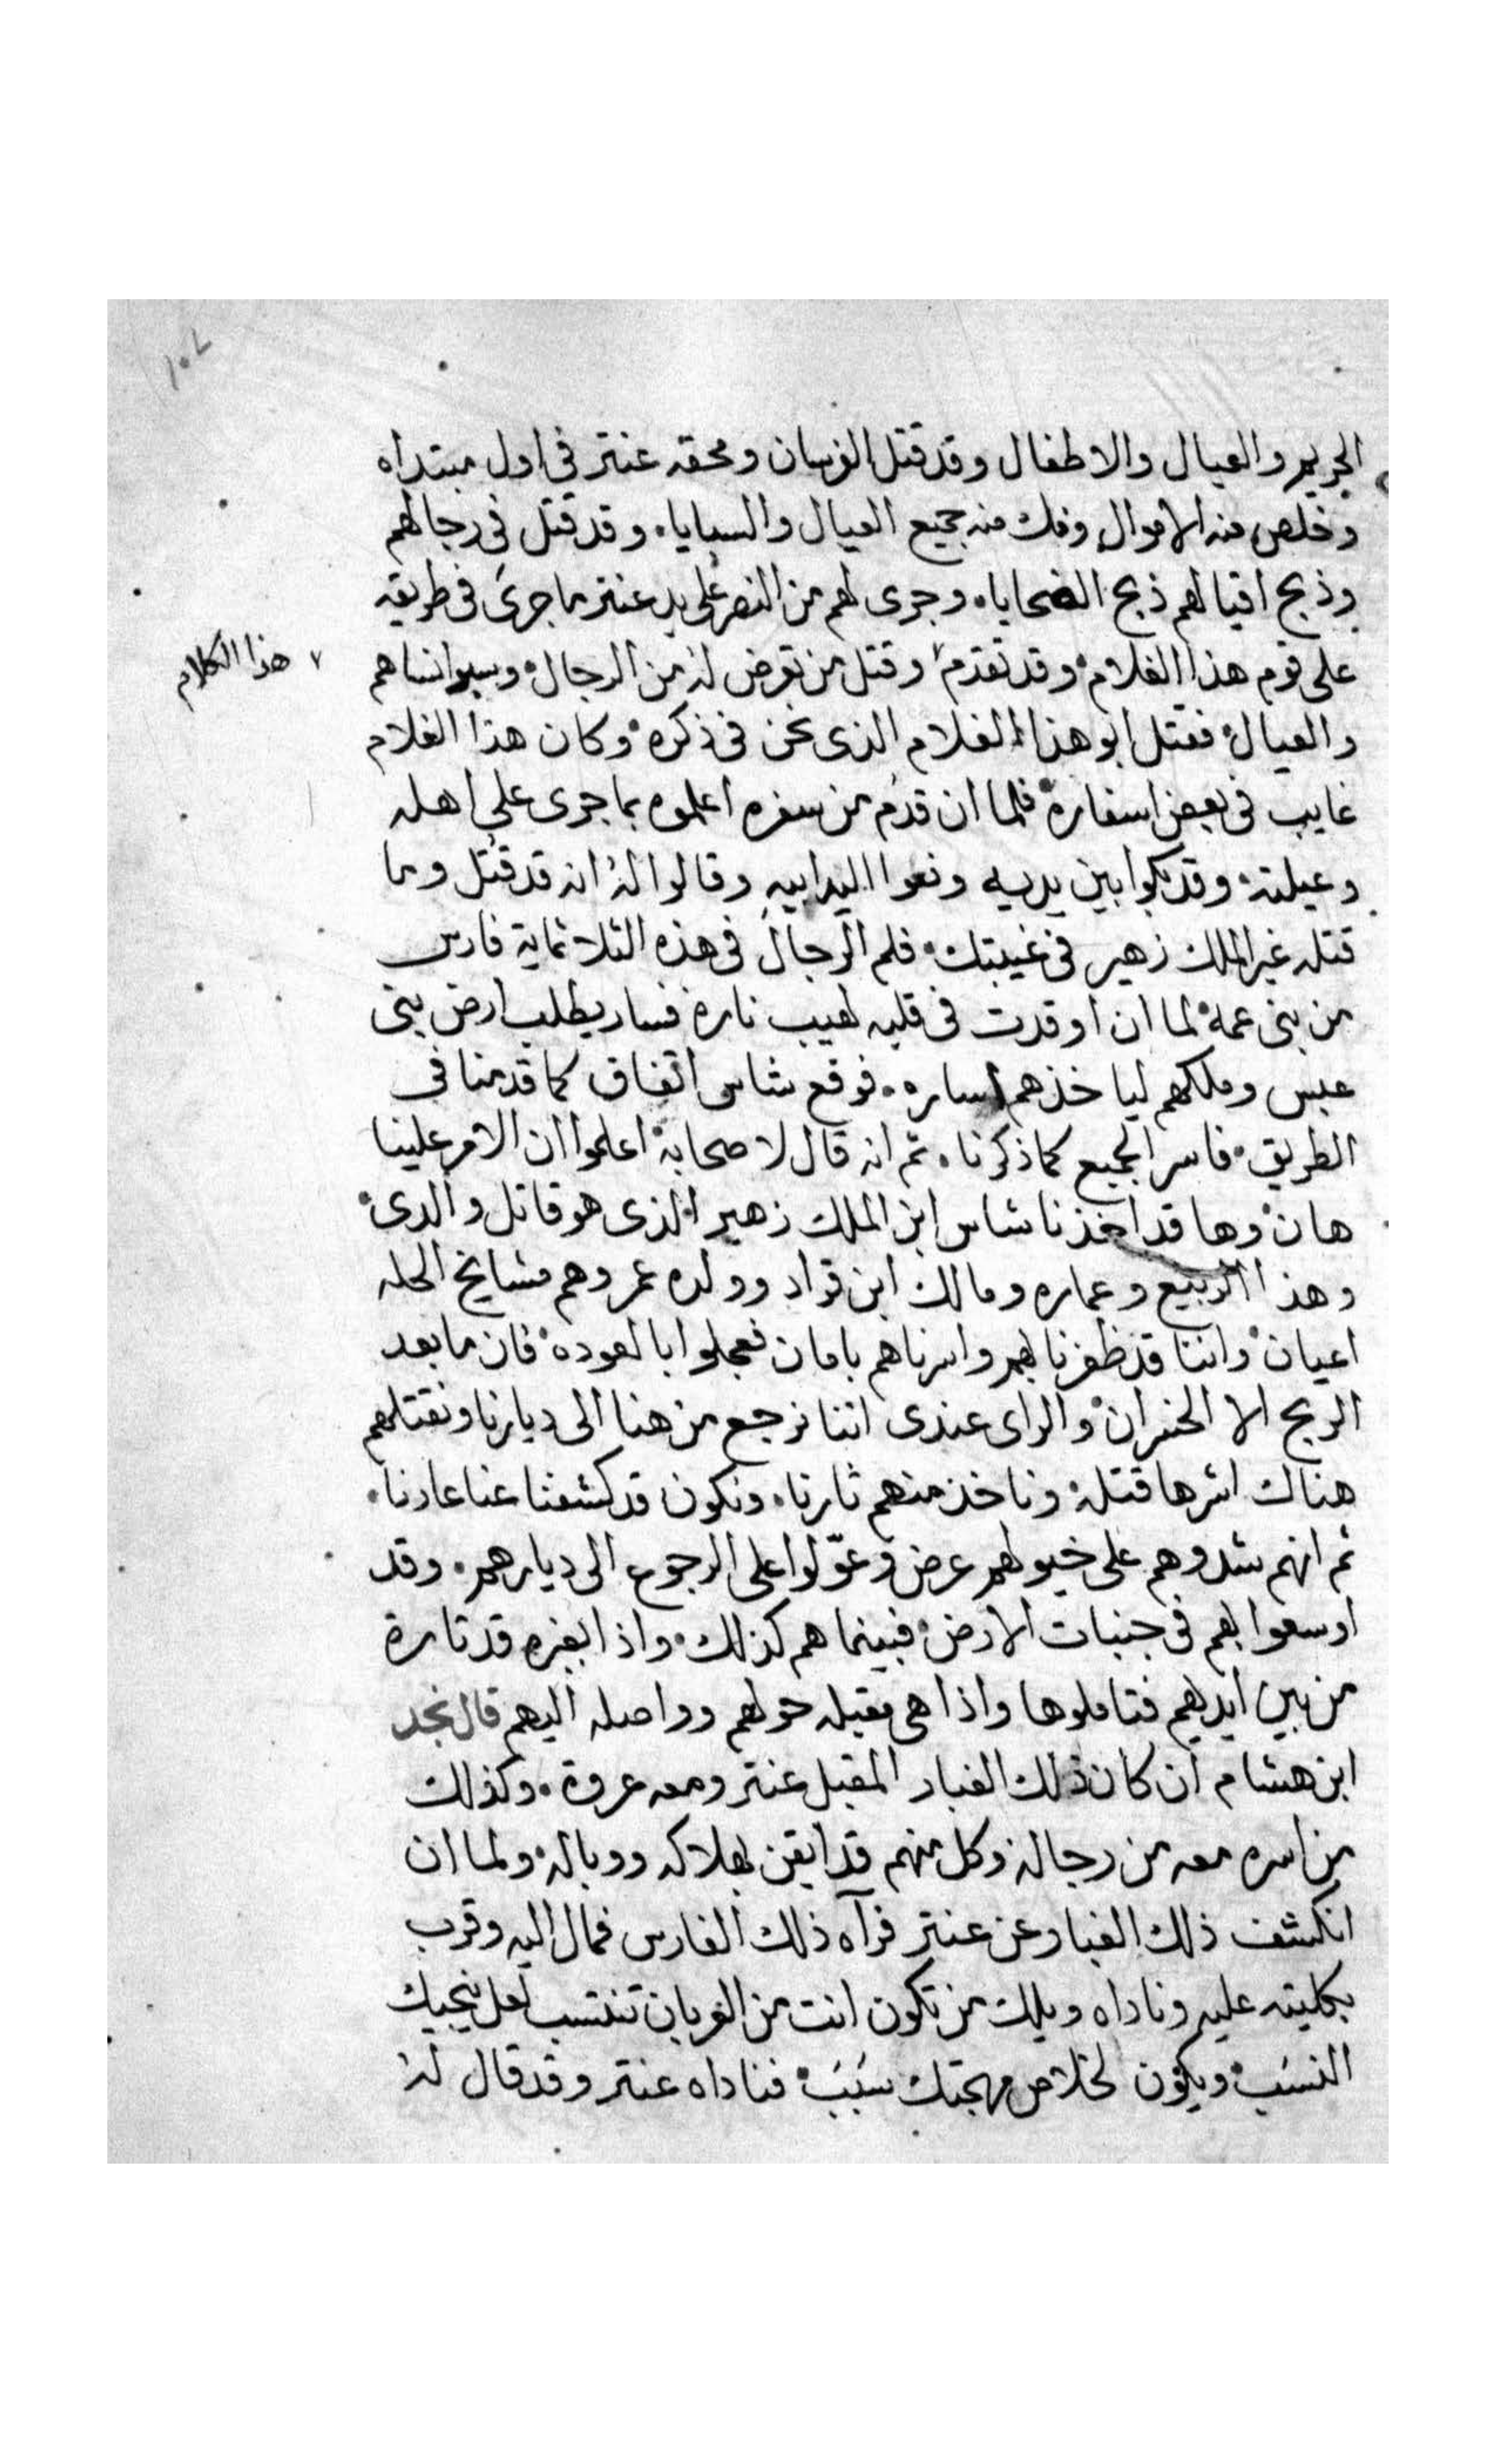 ١٠٧
الحريم والعيال والاطفال وقد قتل الفرسان ومحقه عنتر في اول مبتداه
وخلص منه الاموال وفك منه جميع العيال والسبايا. وقد قتل في رجالهم
وذبح اقيالهم ذبح الضحايا. وجرى لهم من النصر على يد عنتر ما جرى في طريقه
على قوم هذا الغلام وقد تقدم ٧ وقتل من تعرض له من الرجال وسبوا نساهم
٧ هذا الكلام
والعيال فقتل ابو هذا الغلام الذى نحن في ذكره وكان هذا الغلام
غايب في بعض اسفاره فلما ان قدم من سفره اعلموه بما جرى على اهله
وعيلته. وقد بكوا بين يديه ونعوا اليه ابيه وقالوا له انه قد قتل وما
قتله غير الملك زهير في غيبتك. فلم الرجال في هذه الثلاثماية فارس
من بنى عمه لما ان اوقدت في قلبه لهيب ناره فسار يطلب ارض بنى
عبس وملكهم لياخذهم اساره. فوقع شاس اتفاق كما قدمنا في
الطريق. فاسر الجميع كما ذكرنا. ثم انه قال لاصحابه اعلموا ان الامر علينا
هان وها قد اخذنا شاس ابن الملك زهير الذى هو قاتل والدى
وهذا الربيع وعماره ومالك ابن قراد وولده عمرو وهم مشايخ الحله
اعيان واننا قد ظفرنا بهم واسرناهم بامان فعجلوا بالعوده فان ما بعد
الربح الا الخسران والراى عندى اننا نرجع من هنا الى ديارنا ونقتلهم
هناك اشرها قتله وناخذ منهم ثارنا. ونكون قد كشفنا عنا عارنا.
ثم انهم شدوهم على خيولهم عرض وعوّلوا على الرجوع الى ديارهم. وقد
اوسعوا بهم في جنبات الارض فبينما هم كذلك. واذا بغبره قد ثارة
من بين ايديهم فتاملوها واذا هى مقبله حولهم وواصله اليهم قال نجد
ابن هشام ان كان ذلك الغبار المقبل عنتر ومعه عروة. وكذلك
من اسره معه من رجاله وكل منهم قد ايقن بهلاكه ووباله ولما ان
انكشف ذلك الغبار عن عنتر فرآه ذلك الفارس فمال اليه وقرب
بكليته عليه وناداه ويلك من تكون انت من العربان تنتسب لعل ينجيك
النسب ويكون لخلاص مهجتك سبب فناداه عنتر وقد قال له